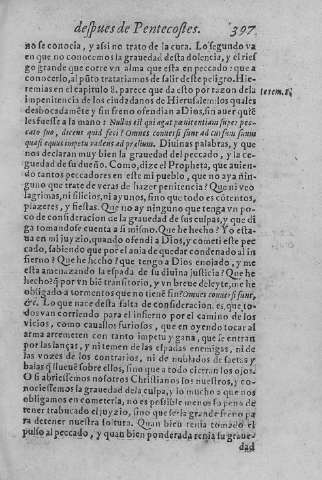 despues de Pentecostes. 397
no se conocia, y assi no trato de la cura. Lo segundo va
en que no conocemos la grauedad desta dolencia, y el ries
go grande que corre vn alma que esta en peccado: que a
conocerlo, al pũto tratariamos de salir deste peligro. Hie-
remias en el capitulo 8. parece que da esto por razon de la
Ierem. 8.
impenitencia de los ciudadanos de Hierusalem: los quales
desbocadamẽte y sin freno ofendian a Dios, sin auer quiẽ
les fuesse a la mano: Nullus est qui agat pœnitentiam super pec-
cato suo, dicens quid feci? Omnes conuersi sunt ad cursum suum
quasi equus impetu vadens ad prælium. Diuinas palabras, y que
nos declaran muy bien la grauedad del peccado, y la ce-
guedad de su dueño. Como, dize el Propheta, que auien-
do tantos peccadores en este mi pueblo, que no aya nin-
guno que trate de veras de hazer penitencia? Que ni veo
lagrimas, ni silicios, ni ayunos, sino que todo es cõtentos,
plazeres, y fiestas. Que no ay ninguno que tenga vn po-
co de consideracion de la grauedad de sus culpas, y que di
ga tomandose cuenta a si mismo. Que he hecho? Yo esta-
ua en mi juyzio, quando ofendi a Dios, y cometi este pec
cado, sabiendo que por el auia de quedar condenado al in
fierno? Que he hecho? que tengo a Dios enojado, y me
esta amenazando la espada de su diuina justicia? Que he
hecho? q̃ por vn biẽ transitorio, y vn breue deleyte, me he
obligado a tormentos que no tienẽ fin? Omnes conuersi sunt,
&c. Lo que nace desta falta de consideracion es, que to-
dos van corriendo para el infierno por el camino de los
vicios, como cauallos furiosos, que en oyendo tocar al
arma arremeten con tanto impetu y gana, que se entran
por las lanças, y ni temen de las espadas enemigas, ni de
las vozes de los contrarios, ni de nublados de saetas y
balas q̃ llueuẽ sobre ellos, sino que a todo cierran los ojos.
O si abriessemos nosotros Christianos los nuestros, y co-
nociessemos la grauedad de la culpa, y lo mucho a que nos
obligamos en cometerla, no es posible menos so pena de
tener trabucado el juyzio, sino que seria grande freno pa
ra detener nuestra soltura. Quan bien tenia tomado el
pulso al peccado, y quan bien ponderada tenia su graue-
dad